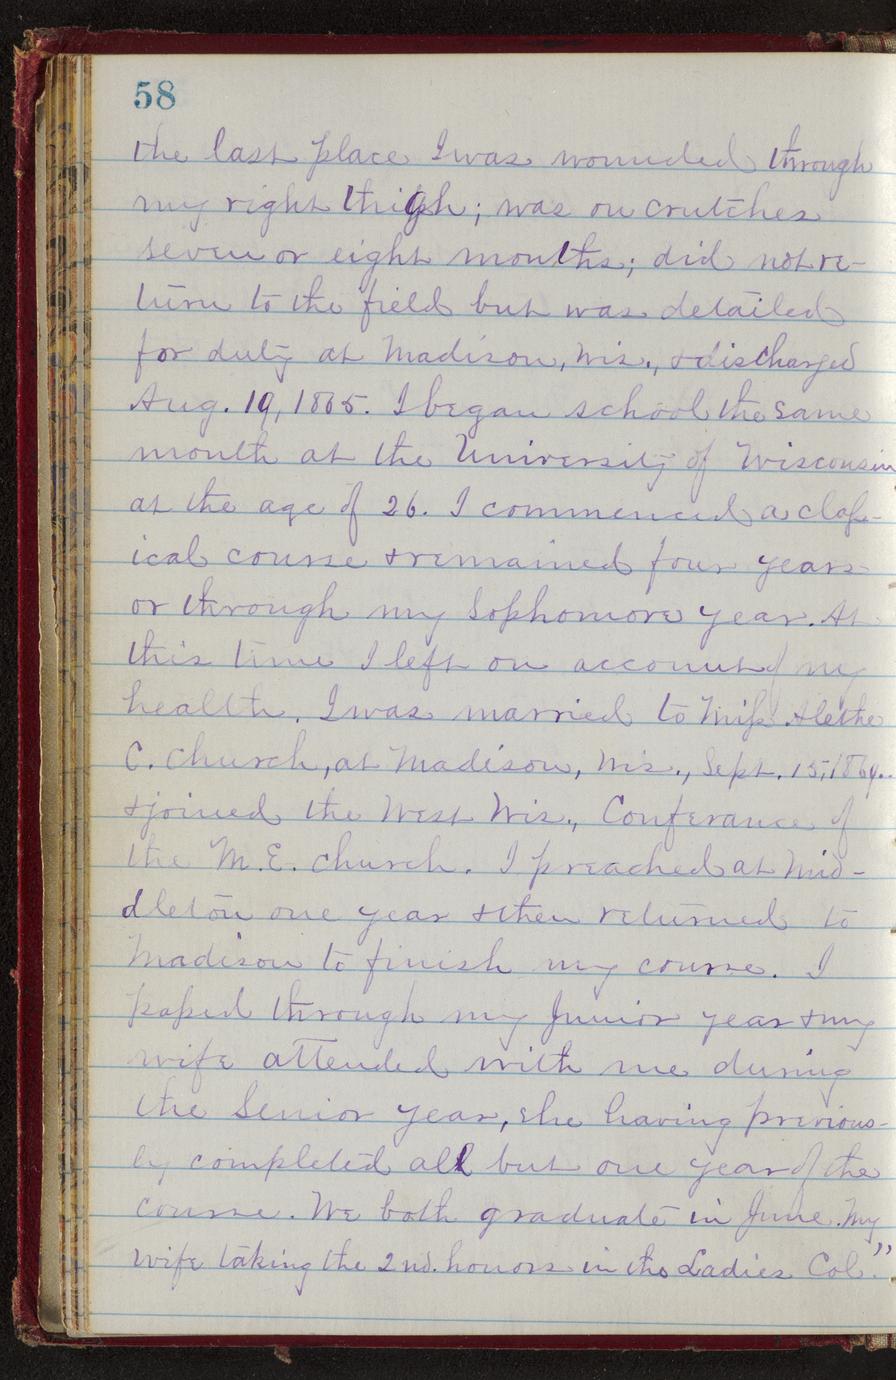 58
the last place I was wounded through
my right thigh; was on crutches
seven or eight months; did not re-
turn to the field but was detailed
for duty at Madison, Wis., & discharged
Aug. 19, 1865. I began school the same
month at the University of Wisconsin
at the age of 26. I commenced a class-
ical course & remained four years
or through my Sophomore year. At
this time I left on account of my
health. I was married to Miss Alethe
C. Church, at Madison, Wis., Sept. 15, 1869.
& joined the West Wis., Conferance of
the M.E. Church. I preached at Mid-
dleton one year & then returned to
Madison to finish my course. I
passed through my Junior year & my
wife attended with me during
the Senior year, she having previous-
ly completed all but one year of the
course. We both graduate in June. My
wife taking the 2nd. honors in the Ladies Col."